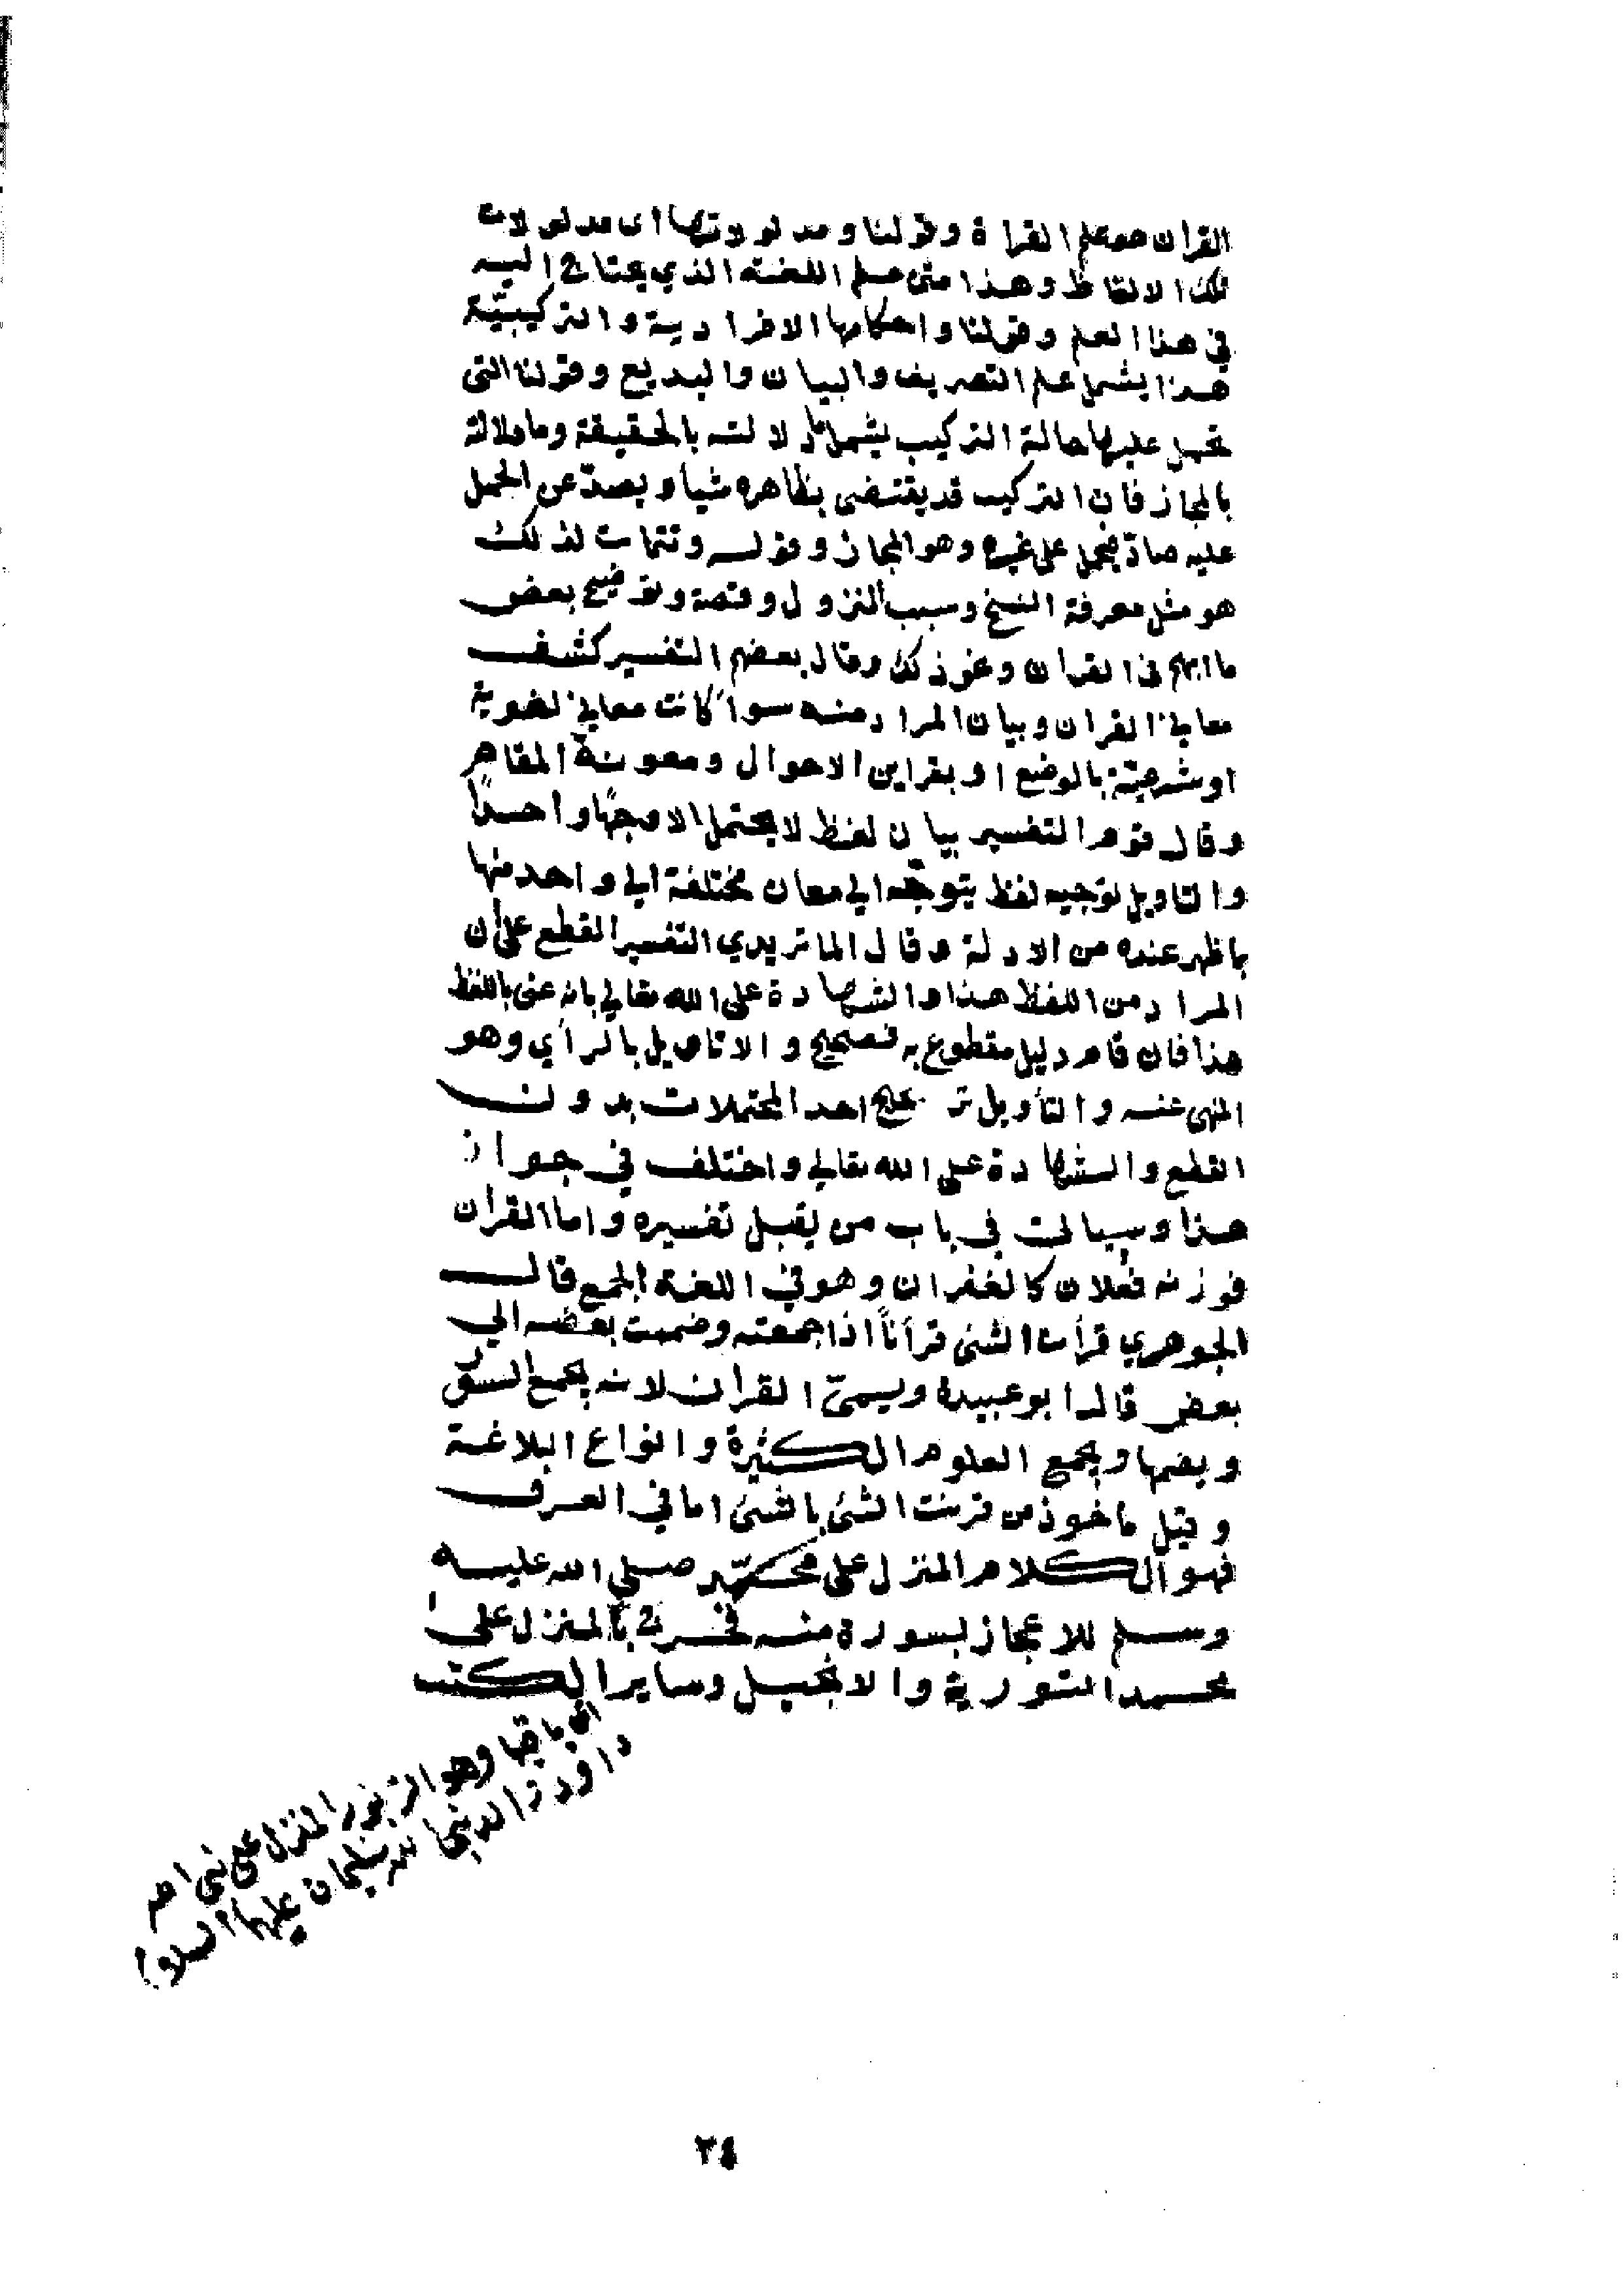 القران هو علم القراة وقولنا ومدلولاتها اى مدلولات
تلك الالفاظ وهذا متن علم اللغة الذي يحتاج اليه
في هذا العلم وقولنا واحكامها الافرادية والتركيبيّة
هذا يشمل علم التصريف والبيان والبديع وقولنا التى
تحمل عليها حالة التركيب يشمل ما دلالته بالحقيقة وما دلالته
بالمجاز فان التركيب قد يقتضى بظاهره شيا ويصدّ عن الحمل
عليه صادّ فيحمل على غيره وهو المجاز وقوله وتتمات لذلك
هو مثل معرفة النسخ وسبب النزول وقصة وتوضيح بعض
ما ابهم في القران ونحو ذلك وقال بعضهم التفسير كشف
معاني القران وبيان المراد منه سوا كانت معاني لغوية
او شرعيّة بالوضع او بقراين الاحوال ومعونة المقام
وقال قوم التفسير بيان لفظ لا يحتمل الا وجهًا واحدًا
والتاويل توجيه لفظ يتوجّه الي معان مختلفة الي واحد منها
بما ظهر عنده من الادلة وقال الماتريدي التفسير القطع على ان
المراد من اللفظ هذا والشهادة على الله تعالي بانه عنى باللفظ
هذا فان قام دليل مقطوع به فصحيح والا تاويل بالرأي وهو
المنهى عنه والتأويل ترجيح احد المحتملات بدون
القطع والشهادة على الله تعالي واختلف في جواز
هذا وسيات في باب من يقبل تفسيره واما القران
فوزنه فعلان كالغفران وهو في اللغة الجمع قال
الجوهري قرأت الشئ قرأناً اذا جمعته وضممت بعضه الي
بعض قال ابو عبيدة ويسمىّ القران لانه يجمع السوَر
ويضمها ويجمع العلوم الكثيرة وانواع البلاغة
وقيل ماخوذ من قرنت الشئ بالشئ اما في العرف
فهو الكلام المنزل على محمّد صلي الله عليه
وسلم للاعجاز بسورة منه فخرج بالمنزل على
محمد التورية والانجيل وساير الكتب
الباقيا وهو الزبور المنزل على نبي الله
داود عليهما السلام
٢٤